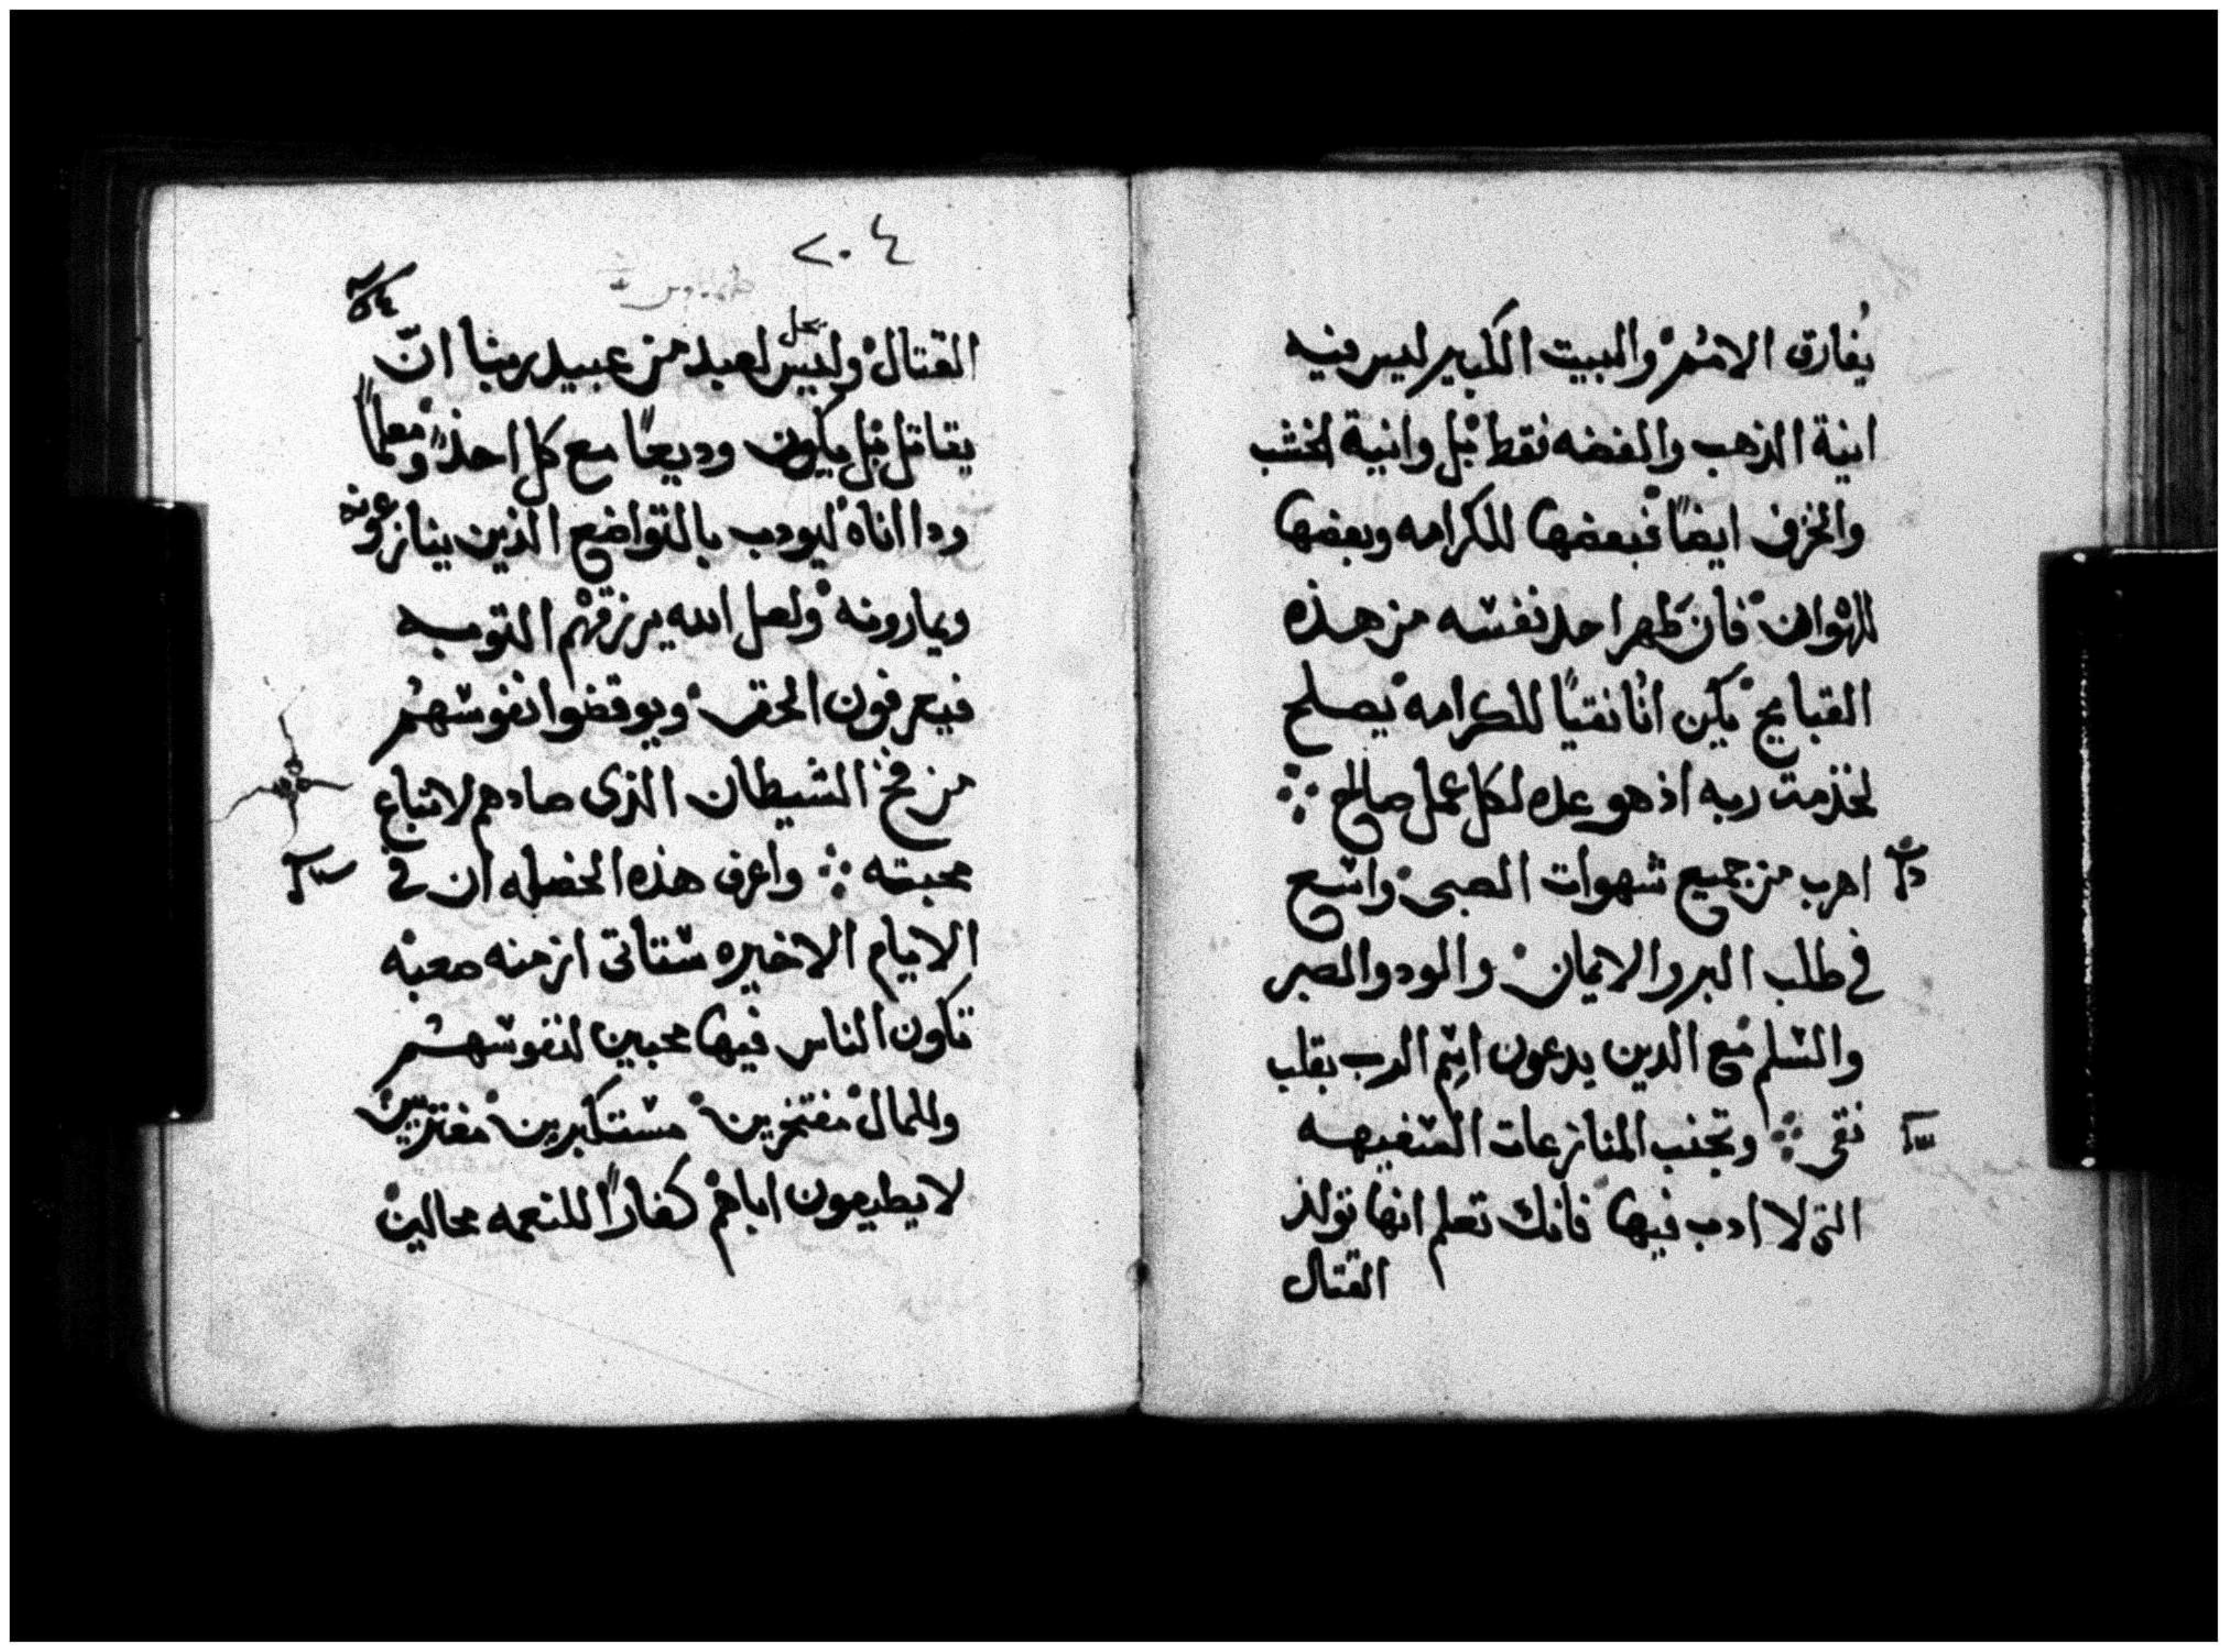 يُفارق الاثم والبيت الكبير ليس فيه
انية الذهب والفضه فقط بل وانية الخشب
والخزف ايضاً فبعضها للكرامه وبعضها
للهوان فان طهر احد نفسه من هذه
القبايح يكن اناً نقياً للكرامه يصلح
لخذمت ربه اذ هو عده لكل عمل صالح
اهرب من جميع شهوات الصبى واسع
في طلب البر والايمان والود والصبر
والسلم مع الدين يدعون اسم الرب بقلب
نقى وتجنب المنازعات السفيهه
التى لا ادب فيها فانك تعلم انها تولد
القتال
٢٠٤
القتال وليس يحل لعبد من عبيد ربنا ان
يقاتل بل يكون وديعاً مع كل احد ومعلماً
ودا اناه ليودب بالتواضع الذين ينازعونه
ويمارونه ولعل الله يرزقهم التوبه
فيعرفون الحق ويوقضوا نفوسهم
من فخ الشيطان الذى صادهم لاتباع
محبته واعرف هذه الخصله ان في
الايام الاخيره ستاتى ازمنه صعبه
تكون الناس فيها محبين لنفوسهم
وللمال مفتخرين مستكبرين مفتريين
لا يطيعون اباهم كفاراً للنعمه محالين